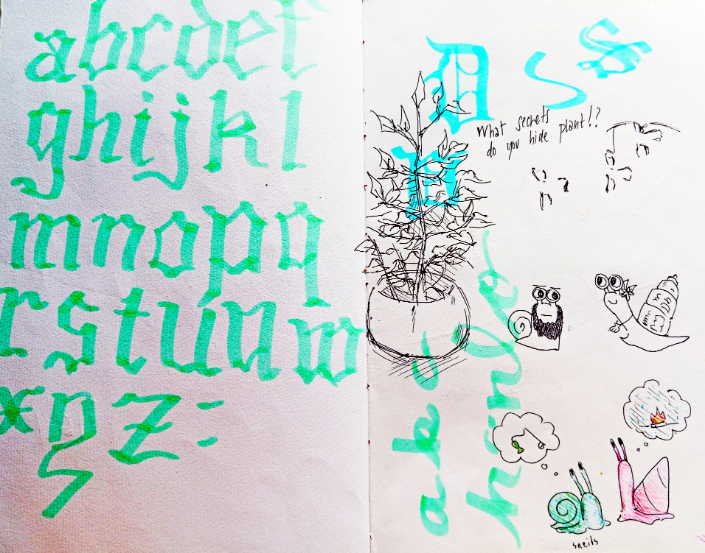 abcdef
ghijkl
mnopq
rstuvw
xyz
D S S
What secrets
do you hide plant!?
snails